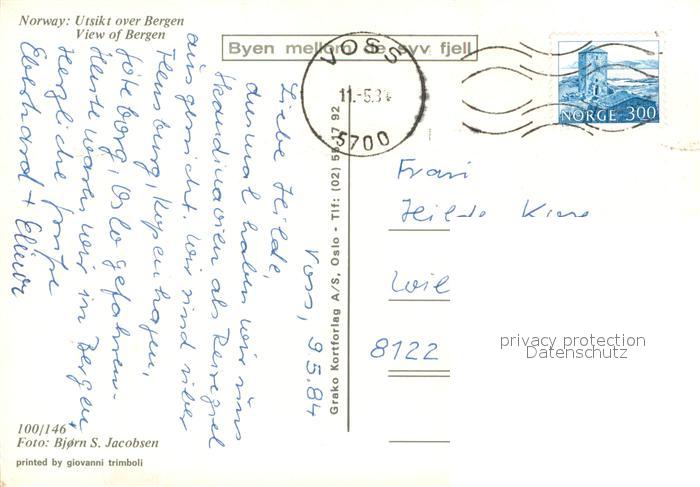 Norway: Utsikt over Bergen
View of Bergen
Byen mellom de syv fjell
VOSS
11.-5.84
5700
NORGE 300
Voss, 9.5.84
Liebe Hilde,
diesmal haben wir uns
Skandinavien als Reiseziel
ausgesucht. Wir sind über
Flensburg, Kopenhagen,
Göteborg, Oslo gefahren.
Heute waren wir in Bergen.
Herzliche Grüße
Eberhard +
Frau
Hilde
Wil
8122
privacy protection
Datenschutz
Grako Kortforlag A/S, Oslo - Tlf: (02) 55 17 92
100/146
Foto: Bjørn S. Jacobsen
printed by giovanni trimboli